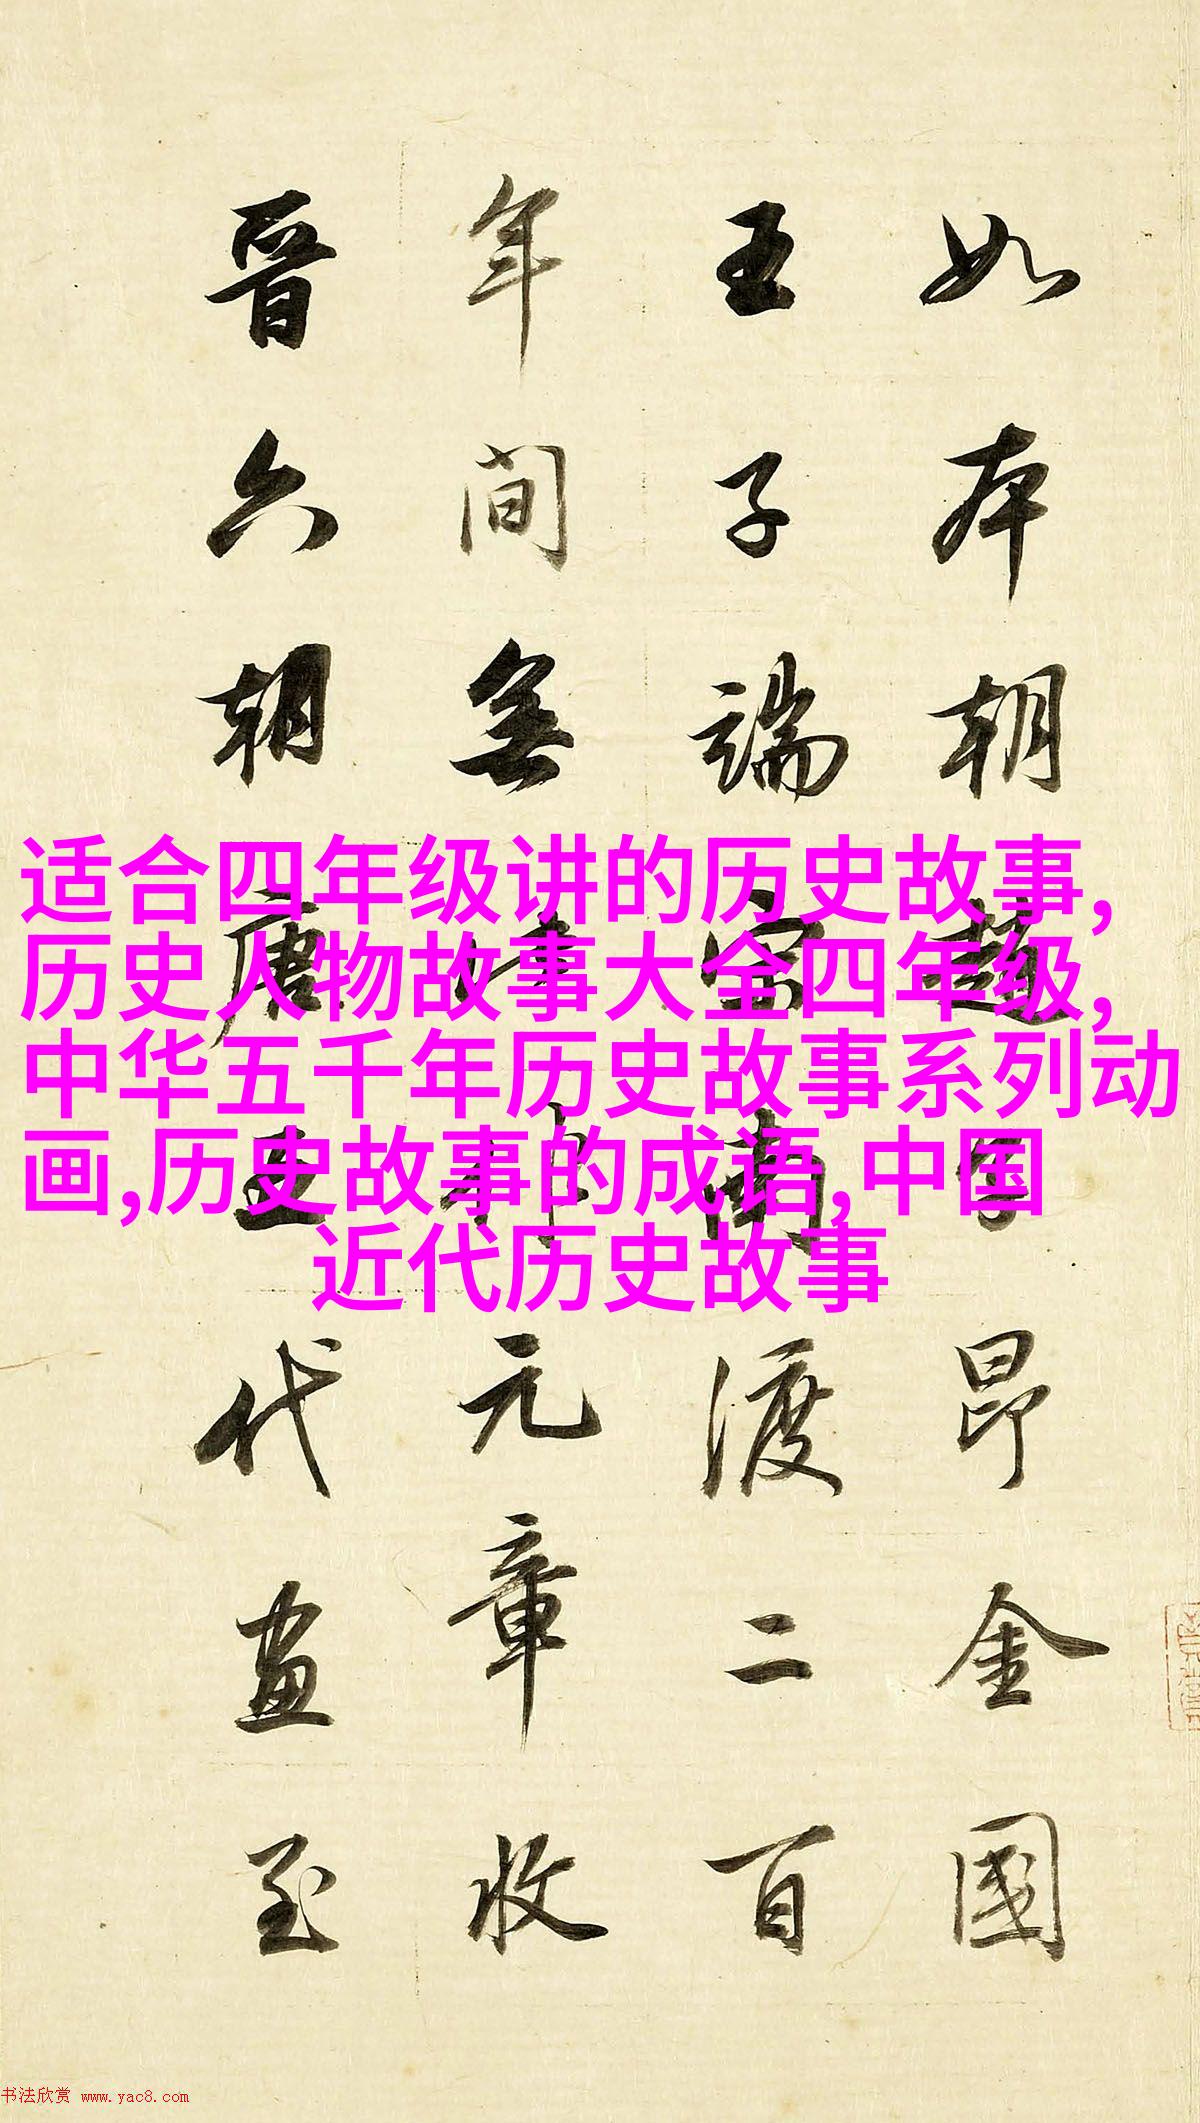 如本朝趙子昂金國
王子端宋南渡二百
年間無
元章收
晉六朝唐五代畫至
适合四年级讲的历史故事,
历史人物故事大全四年级,
中华五千年历史故事系列动
画,历史故事的成语,中国
近代历史故事
书法欣赏 www.yac8.com